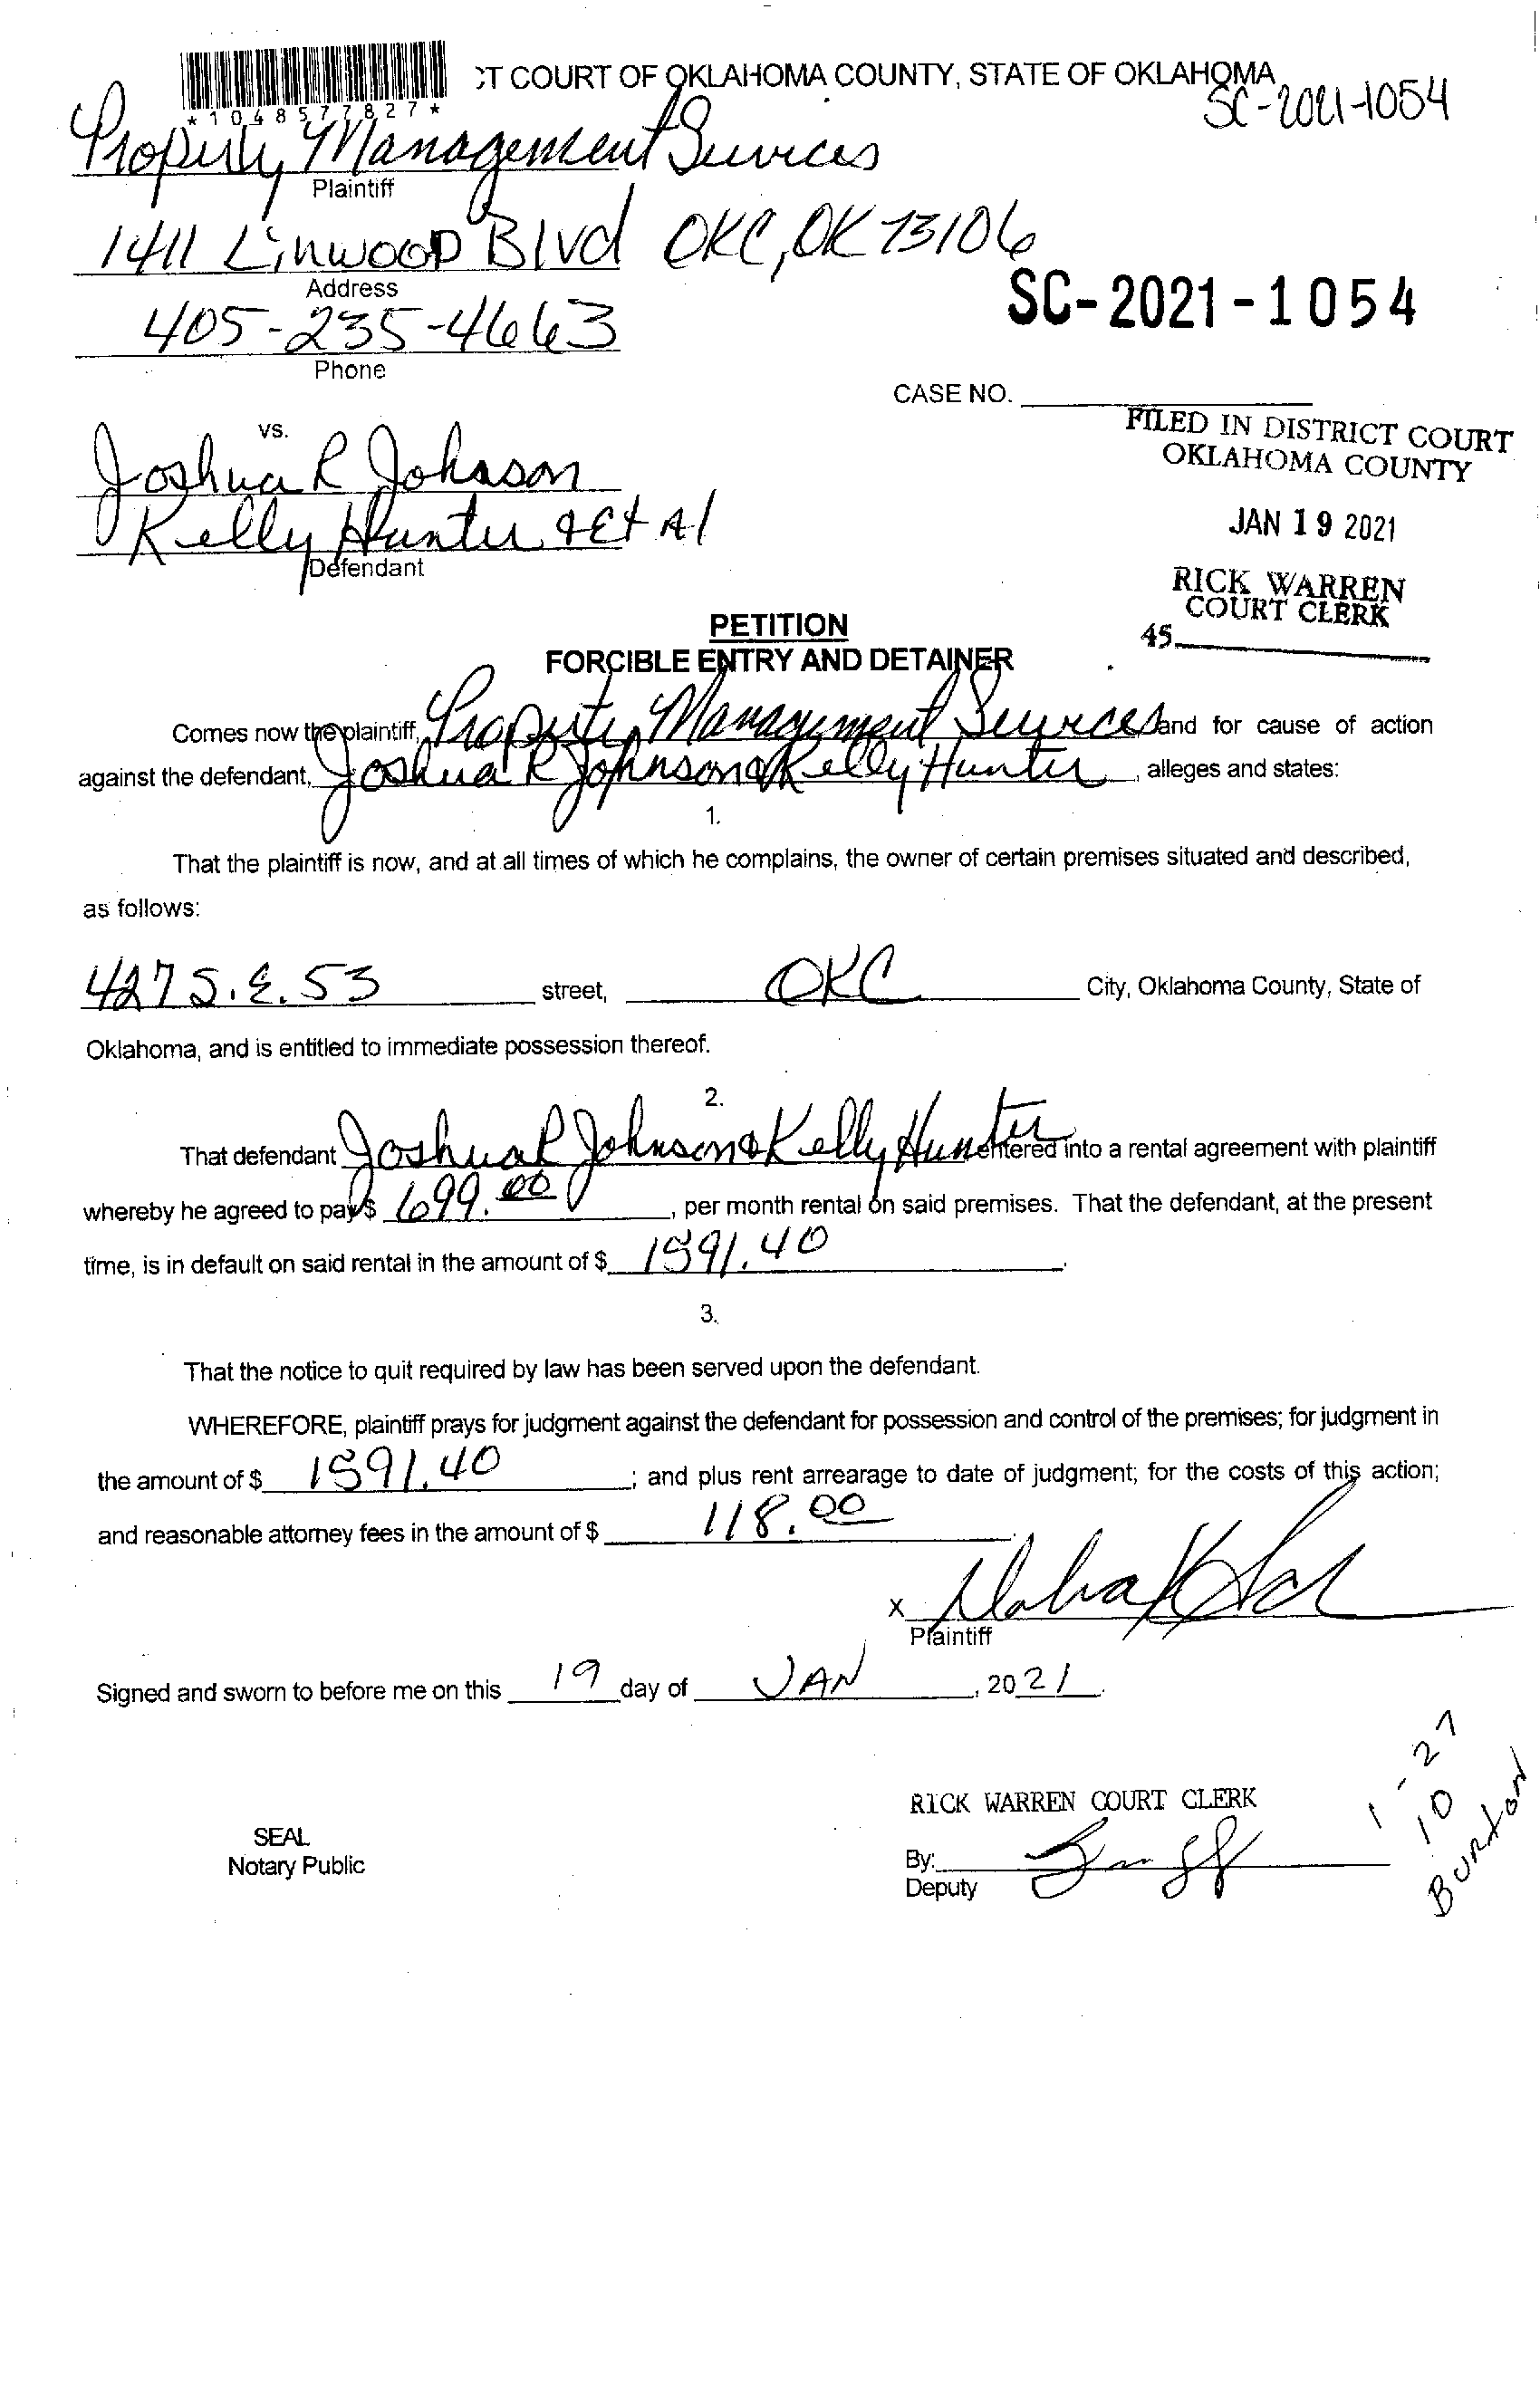 *1048577827*
CT COURT OF OKLAHOMA COUNTY, STATE OF OKLAHOMA
SC-2021-1054
Property Management Services
Plaintiff
1411 Linwood Blvd OKC, OK 73106
Address
SC-2021-1054
405-235-4663
Phone
CASE NO.
FILED IN DISTRICT COURT
OKLAHOMA COUNTY
vs.
Joshua R Johnson
Kelly Hunter & Et Al
Defendant
JAN 19 2021
RICK WARREN
COURT CLERK
45
PETITION
FORCIBLE ENTRY AND DETAINER
Comes now the plaintiff, Property Management Services and for cause of action
against the defendant, Joshua R Johnson & Kelly Hunter, alleges and states:
1.
That the plaintiff is now, and at all times of which he complains, the owner of certain premises situated and described,
as follows:
427 S.E. 53 street, OKC City, Oklahoma County, State of
Oklahoma, and is entitled to immediate possession thereof.
2.
That defendant Joshua R Johnson & Kelly Hunter entered into a rental agreement with plaintiff
whereby he agreed to pay $ 699.00, per month rental on said premises. That the defendant, at the present
time, is in default on said rental in the amount of $ 1591.40.
3.
That the notice to quit required by law has been served upon the defendant.
WHEREFORE, plaintiff prays for judgment against the defendant for possession and control of the premises; for judgment in
the amount of $ 1591.40; and plus rent arrearage to date of judgment; for the costs of this action;
and reasonable attorney fees in the amount of $ 118.00.
X
Plaintiff
Signed and sworn to before me on this 19 day of JAN, 2021.
1-27
10
Burton
RICK WARREN COURT CLERK
SEAL
Notary Public
By:
Deputy